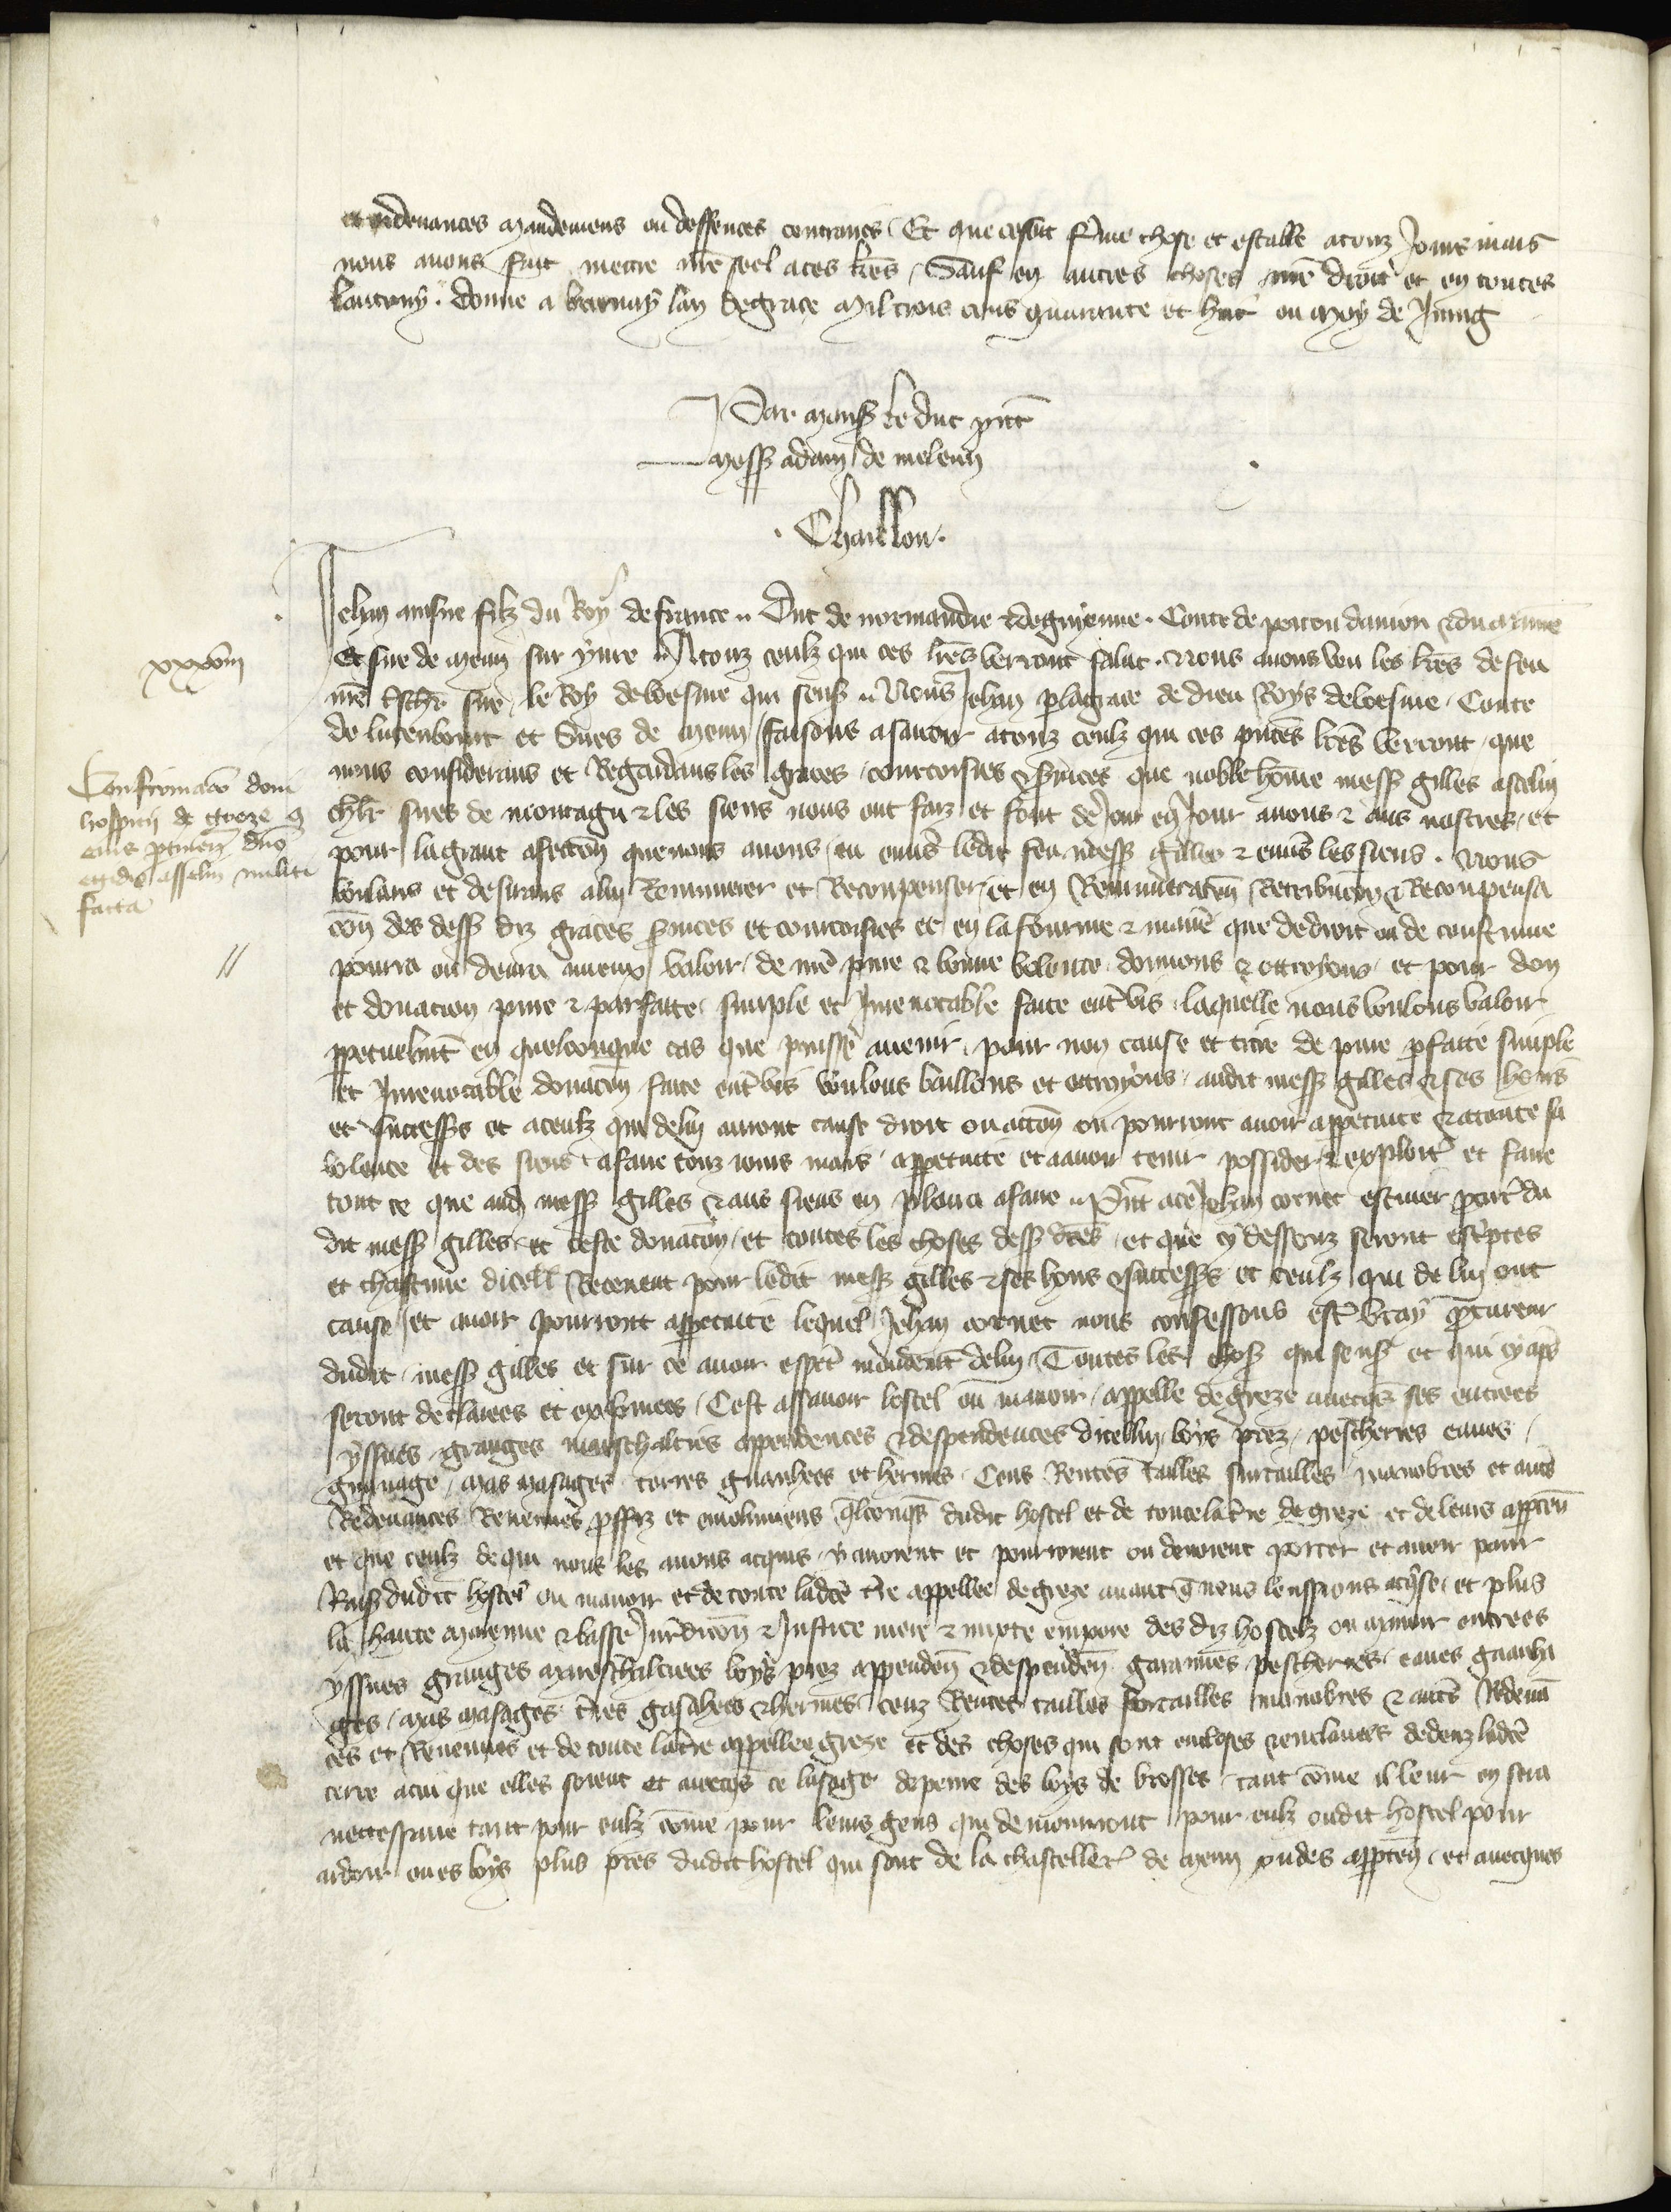 et ordenances mandemens ou deffences contraires Et que ce soit ferme chose et estable a touz jours mais
nous avons fait mettre nre seel a ces lres Sauf en autres choses nre droit et en toutes
lautruy. Donne a lan de grace mil trois cens quarante et huit ou moys de Juing
Par mons le duc pnt
mess adam de meleun
Chaillou.
Jehan ainsne filz du Roy de france Duc de normandie & de guyenne. Conte de poitou danjou & du maine
Et sire de meun sur yevre A touz ceulz qui ces lres verront salut. Nous avons veu les lres de feu
xxxviii
nre treschr sire le Roy de boesme qui sensi Nous Jehan p la grace de dieu Roys de boesme Conte
de lucenbourt et sires de meun faisons asavoir a touz ceulz qui ces pntes lres verront que
nous considerans et Regardans les graces courtoisies & services que noble home mess gilles ascelin
Confirmacio doni
hospicii de greze &
eius ptinen dno
egidio asselin militi
facta
chlr sires de montagu & les siens nous ont faiz et font de jour en jour a nous & aus nostres et
pour la grant afection que nous avons eu envs ledit feu mess gilles & envs les siens. Nous
voulans et desirans a luy Remunerer et Reconpenser et en Remuneration Retribucion & Reconpensa
cion des dess diz graces services et courtoisies et en la fourme & maniere que de droit ou de coustume
pourra ou devra mieux valoir de nre pure & bonne volente donnons & ottroyons et pour don
et donation pure & parfaite simple et Irrevocable faite entre vis laquelle nous voulons valoir
ppetuelmt en quelconque cas que puisse avenir pour non cause et titre de pure pfaite simple
et Irrevocable donacion faite entre vis voulons baillons et ottroyons audit mess gilles & ses hoirs
et successrs et a ceulz qui de luy auront cause droit ou action ou pourront avoir a ppetuite & a toute sa
volente et des siens a faire touz jours mais a ppetuite et a avoir tenir possider & exploitr et faire
tout ce que aud mess gilles & aus siens en plaira a faire Pnt a ce Jehan cornet escuier pcur du
dit mess gilles et ceste donacion et toutes les choses dess dtes et que cy dessouz seront escriptes
et chascune dicell Recevent pour ledit mess gilles & ses hoirs & successrs et ceulz qui de luy ont
cause et avoir pourront a ppetuite lequel Jehan cornet nous confessons estre vray pcureur
dudit mess gilles et sur ce avoir espeal mandent de luy Toutes les chos qui sensi et qui cy aps
seront declairees et exprimees Cest assavoir lostel ou manoir appelle de greze avecqs ses entrees
yssues granges appendences & despendences dicelluy boys prez pescheries eaues
mas masages terres guanhees et hermes Cens Rentes tailles surtailles manobres et autres
Redevances Revenues pffiz et emolumens qlconqs dudit hostel et de toute la tre de greze et de leurs apptenances
et que ceulz de qui nous les avons acquis y avoient et pourroient ou devoient porter et avoir pour
Rais dudit hostel ou manoir et de toute ladte tre appellee de greze avant q nous leussions acqse et plus
la haute moyenne & basse Juridicion & Justice mere & mixte empire des diz hostelz ou manoir entrees
yssues granges boys prez appenden & despenden garennes pescheries eaues
ges mas masages tres & hermes cenz Rentes tailles surtailles manobres & autres Redevan
ces et Revenues et de toute la tre appellee greze et des choses qui sont encloses & enclavees dedenz ladte
terre a cui que elles soient et avecqs ce lusage de prenre des boys de brosses tant come il leur en sera
neccessaire tant pour eulz come pour leurs gens qui demourront pour eulz oudit hostel pour
ardoir ou es boys plus pres dudit hostel qui sont de la chastellerie de meun ou des appten et avecques